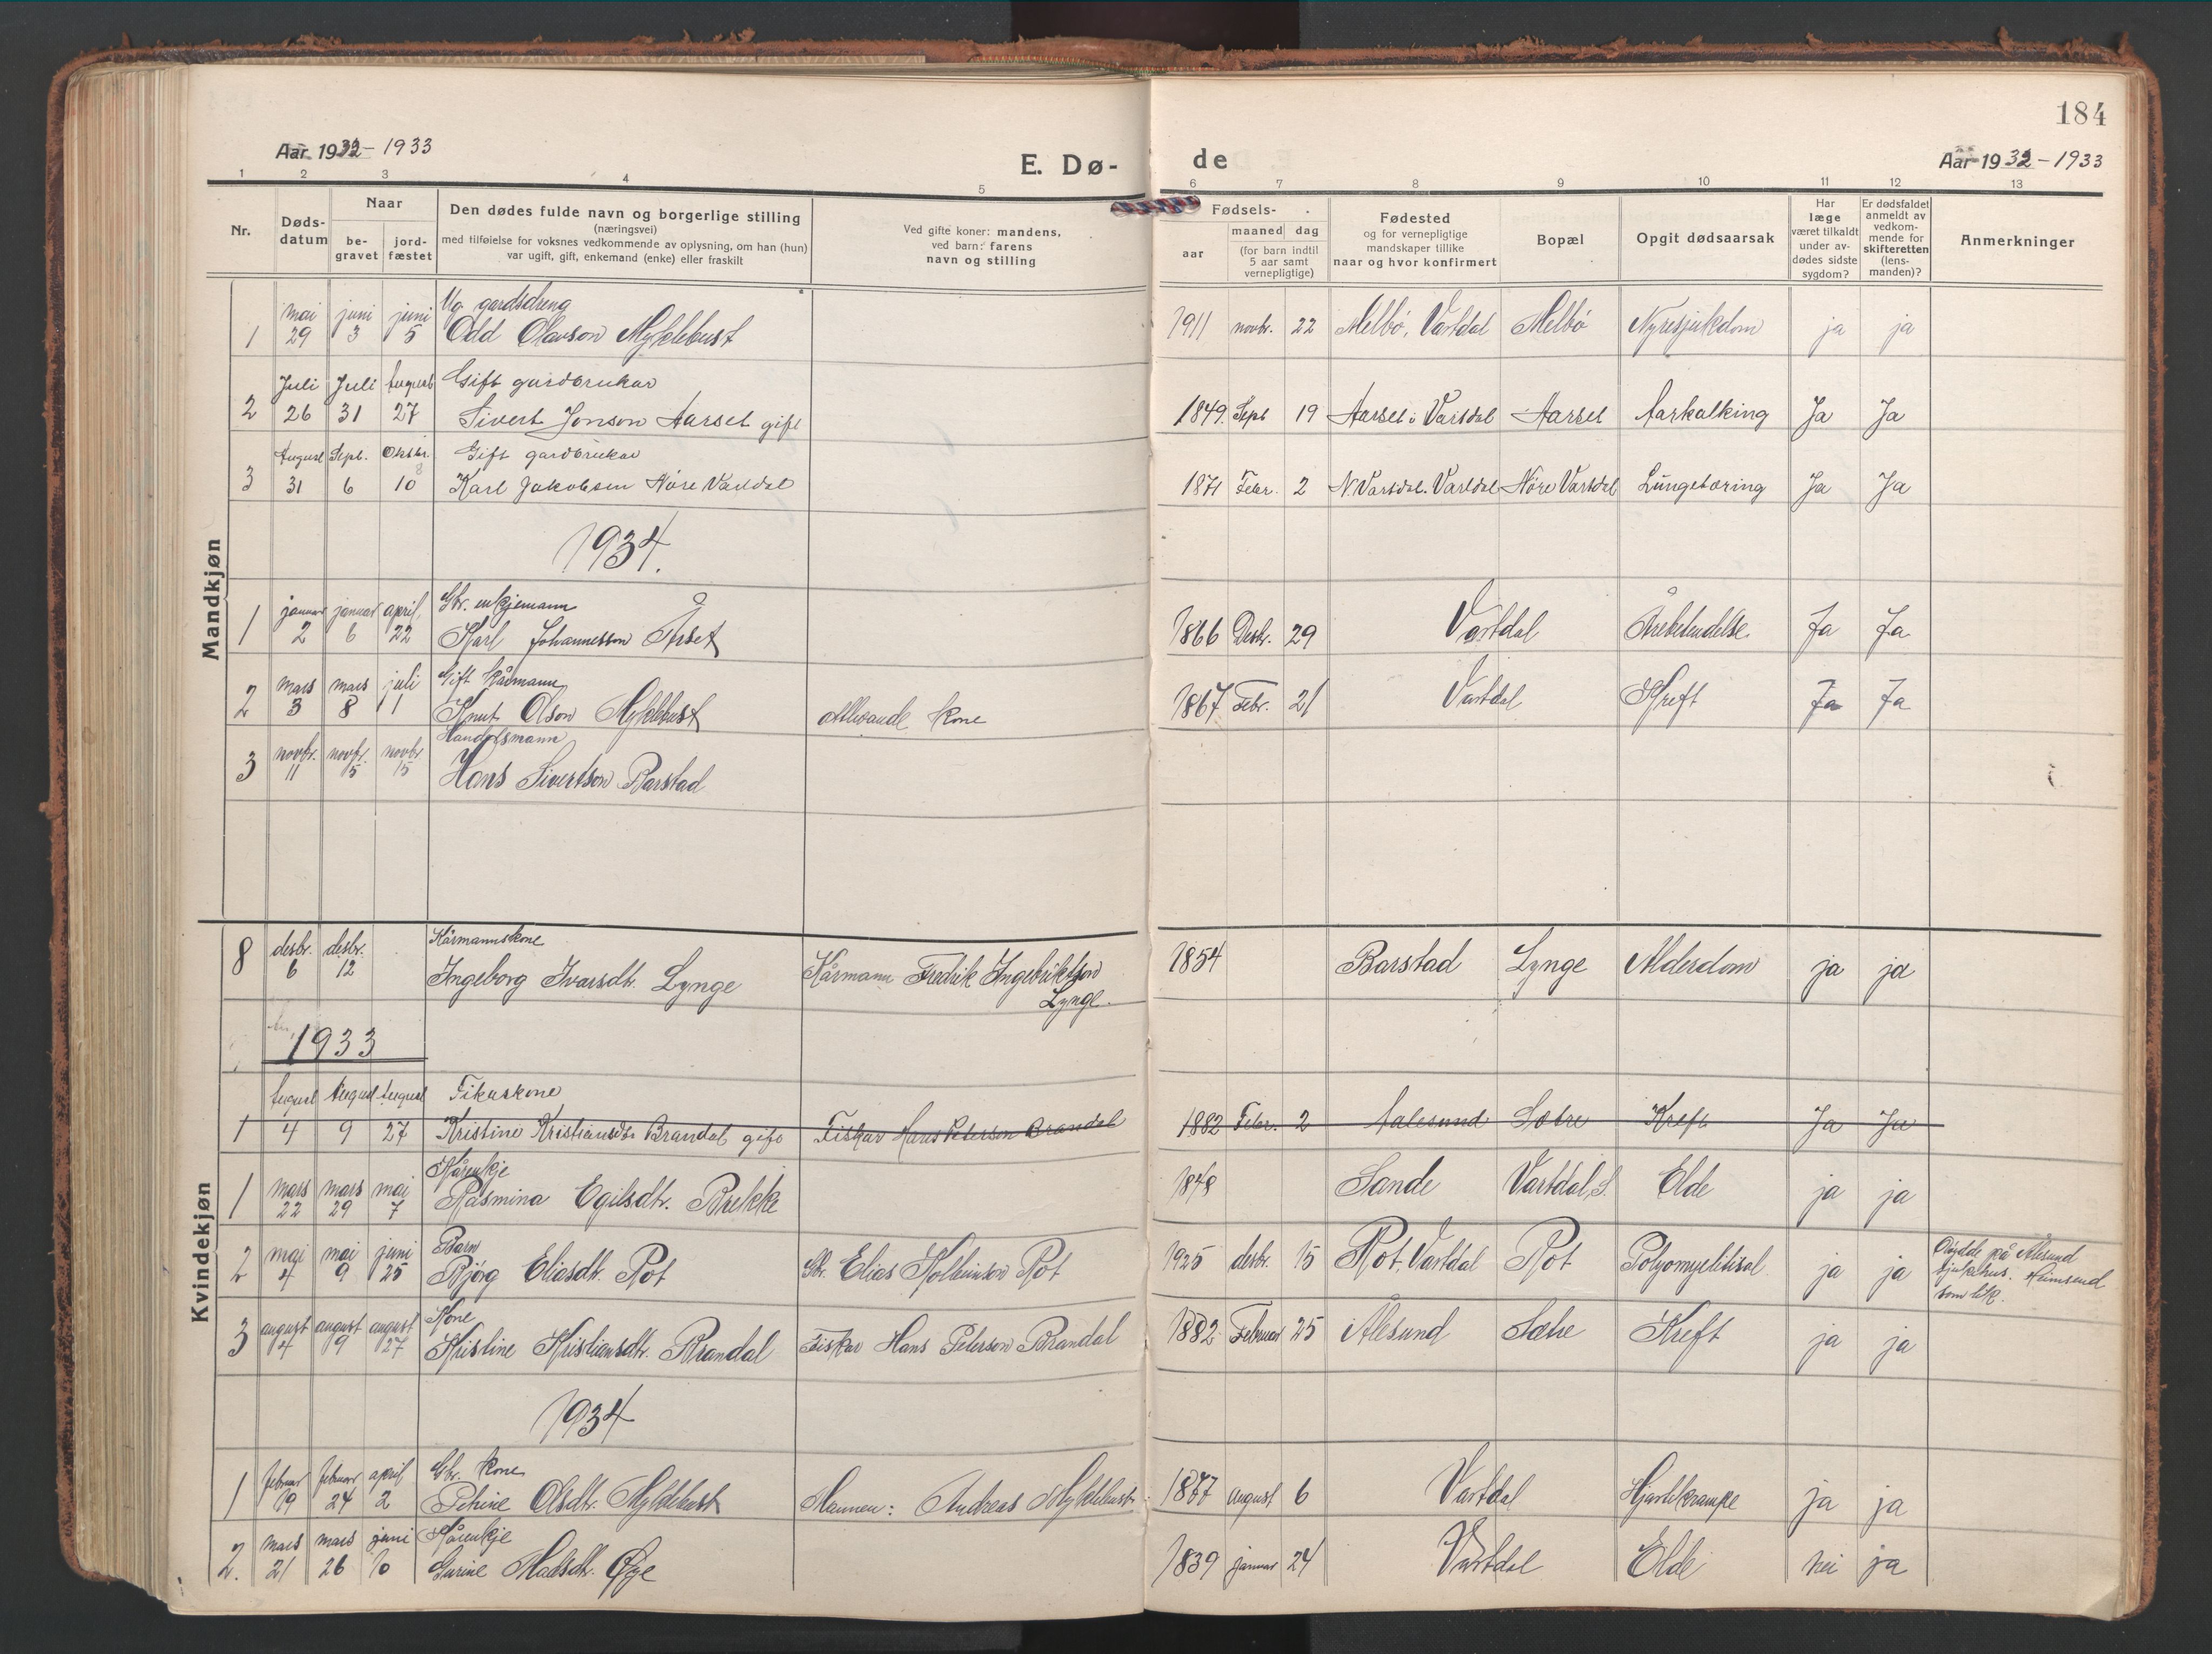 184
Aar 1932 - 1933
E. Dø-
de
Aar 1932 - 1933
1 2 3 4 5 6 7 8 9 10 11 12 13
Nr.
Døds-
datum
Naar
be-
gravet
jord-
fæstet
Den dødes fulde navn og borgerlige stilling
(næringsvei)
med tilføielse for voksnes vedkommende av oplysning, om han (hun)
var ugift, gift, enkemand (enke) eller fraskilt
Ved gifte koner: mandens,
ved barn: farens
navn og stilling
Fødsels-
aar
maaned dag
(for barn indtil
5 aar samt
vernepligtige)
Fødested
og for vernepligtige
mandskaper tillike
naar og hvor konfirmert
Bopæl
Opgit dødsaarsak
Har
læge
været tilkaldt
under av-
dødes sidste
sygdom?
Er dødsfaldet
anmeldt av
vedkom-
mende for
skifteretten
(lens-
manden)?
Anmerkninger
Mandkjøn
mai juni juni Ug gardsdreng
1 29 3 5 Odd Olavson Myklebust 1911 novbr. 22 Melbö, Vartdal Melbö Nyresjukdom ja ja
Juli Juli August Gift gardbrukar
2 26 31 27 Sivert Jonson Aarset gift 1849 Sept 19 Aarset i Vartdal Aarset Aarkalking Ja Ja
August Sept. Oktbr. Gift gardbrukar
8
3 31 6 10 Karl Jakobsen Nöre Vartdal 1871 Febr. 2 N. Vartdal. Vartdal Nöre Vartdal Lungetæring Ja Ja
1934.
januar januar april Gbr. enkjemann
1 2 6 22 Karl Johannesson Årset 1866 Desbr. 29 Vartdal Årebetendelse. Ja Ja
mars mars juli Gift kårmann
2 3 8 11 Knut Olson Myklebust attlivande kone 1867 Febr. 21 Vartdal Kreft Ja Ja
novbr. novbr. novbr Handelsmann
3 11 15 15 Hans Sivertson Barstad
Kvindekjøn
desbr. desbr. Kårmannskone
8 6 12 Ingeborg Ivarsdtr. Lynge Kårmann Fredrik Ingebriktson
Lynge. 1854 Barstad Lynge Alderdom ja ja
1933
August August August Fikarskone
1 4 9 27 Kristine Kristiansdtr Brandal gift Fiskar Hans Peterson Brandal 1882 Febr. 2 Aalesund Sætre Kreft Ja Ja
Kårenkje
1 mars 22 mars 29 mai 7 Rasmina Egilsdtr. Brekke 1848 Sande Vartdal, S. Elde ja ja
Barn
2 mai 4 mai 9 juni 25 Bjørg Eliasdtr. Rot Gbr. Elias Kolbeinson Rot 1925 desbr. 15 Rot, Vartdal Rot ja ja Döydde på Ålesund
sjukehus. Heimsend
som lik.
Kone
3 august 4 august 9 august 27 Kristine Kristiansdtr. Brandal Fiskar Hans Peterson Brandal 1882 Februar 25 Ålesund Sætre Kreft ja ja
1934
Gbr. kone
1 februar 19 februar 24 april 2 Petrine Olsdtr. Myklebust Mannen: Andreas Myklebust 1877 august 6 Vartdal Hjartekrampe ja ja
Kårenkje
2. mars 21 mars 26 juni 10 Gurine Madsdtr. Øye 1839 januar 24 Vartdal Elde nei ja